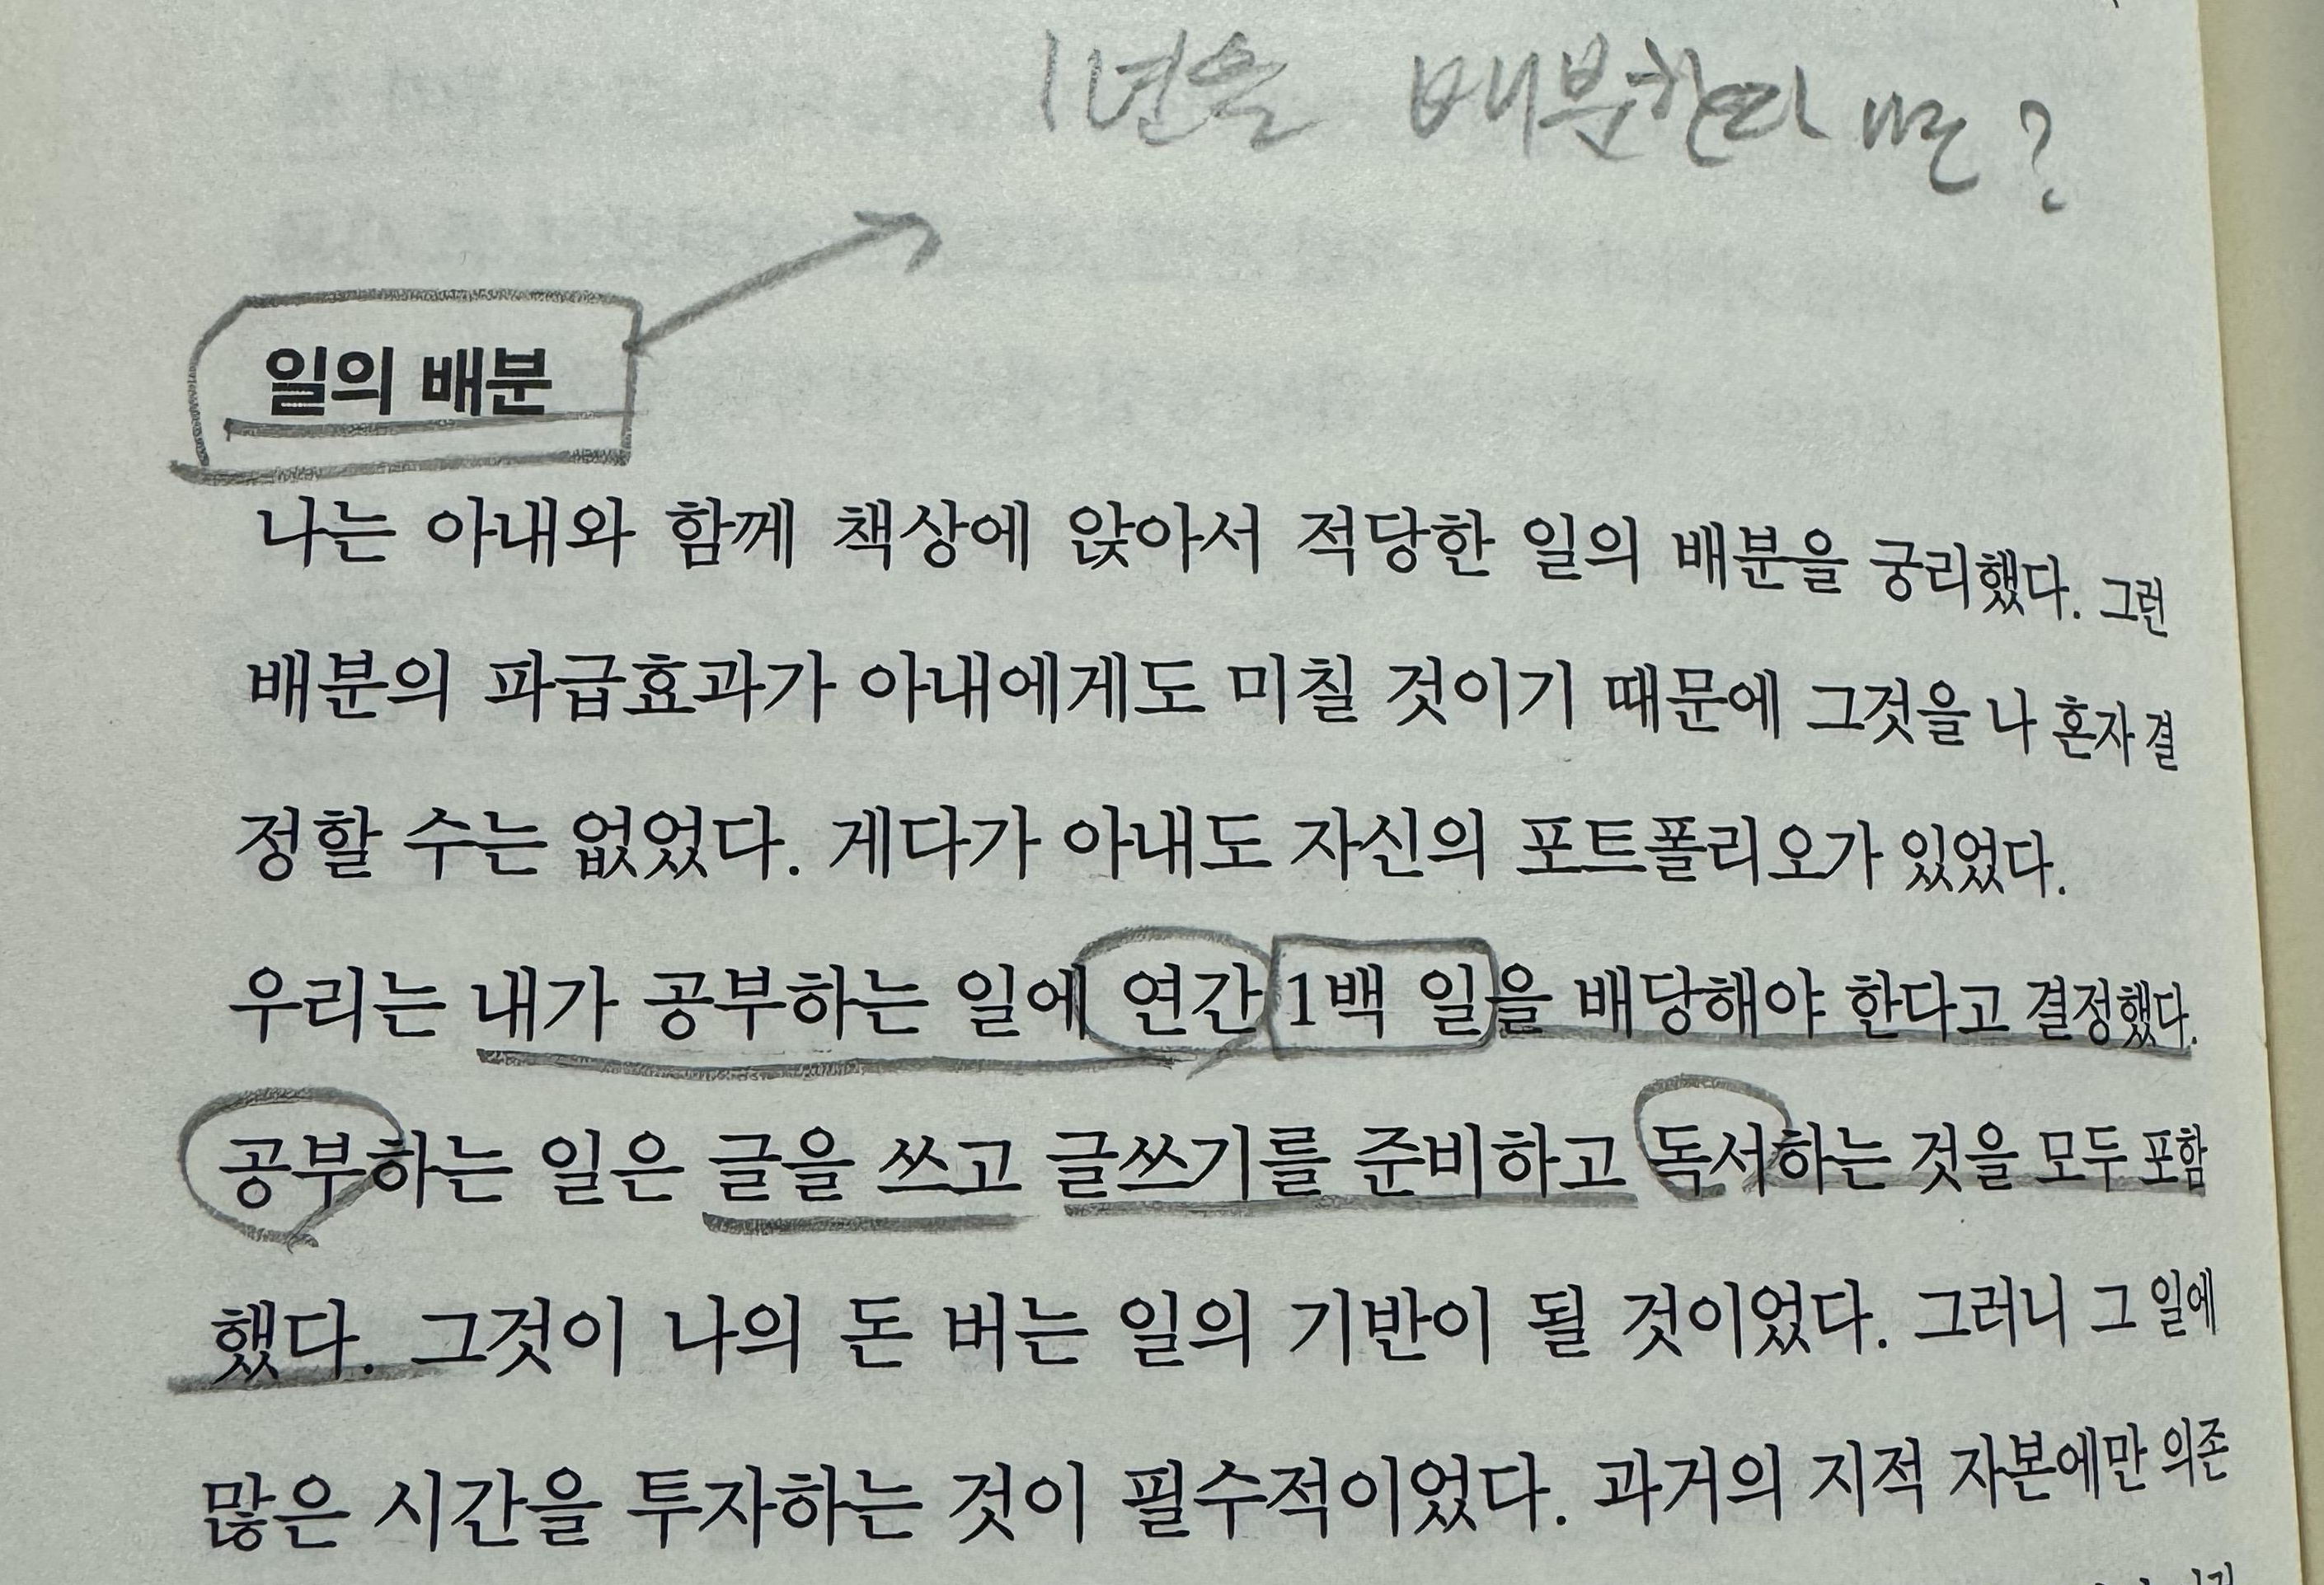 1년을 배분한다면?
일의 배분
나는 아내와 함께 책상에 앉아서 적당한 일의 배분을 궁리했다. 그런
배분의 파급효과가 아내에게도 미칠 것이기 때문에 그것을 나 혼자 결
정할 수는 없었다. 게다가 아내도 자신의 포트폴리오가 있었다.
우리는 내가 공부하는 일에 연간 1백 일을 배당해야 한다고 결정했다.
공부하는 일은 글을 쓰고 글쓰기를 준비하고 독서하는 것을 모두 포함
했다. 그것이 나의 돈 버는 일의 기반이 될 것이었다. 그러니 그 일에
많은 시간을 투자하는 것이 필수적이었다. 과거의 지적 자본에만 의존